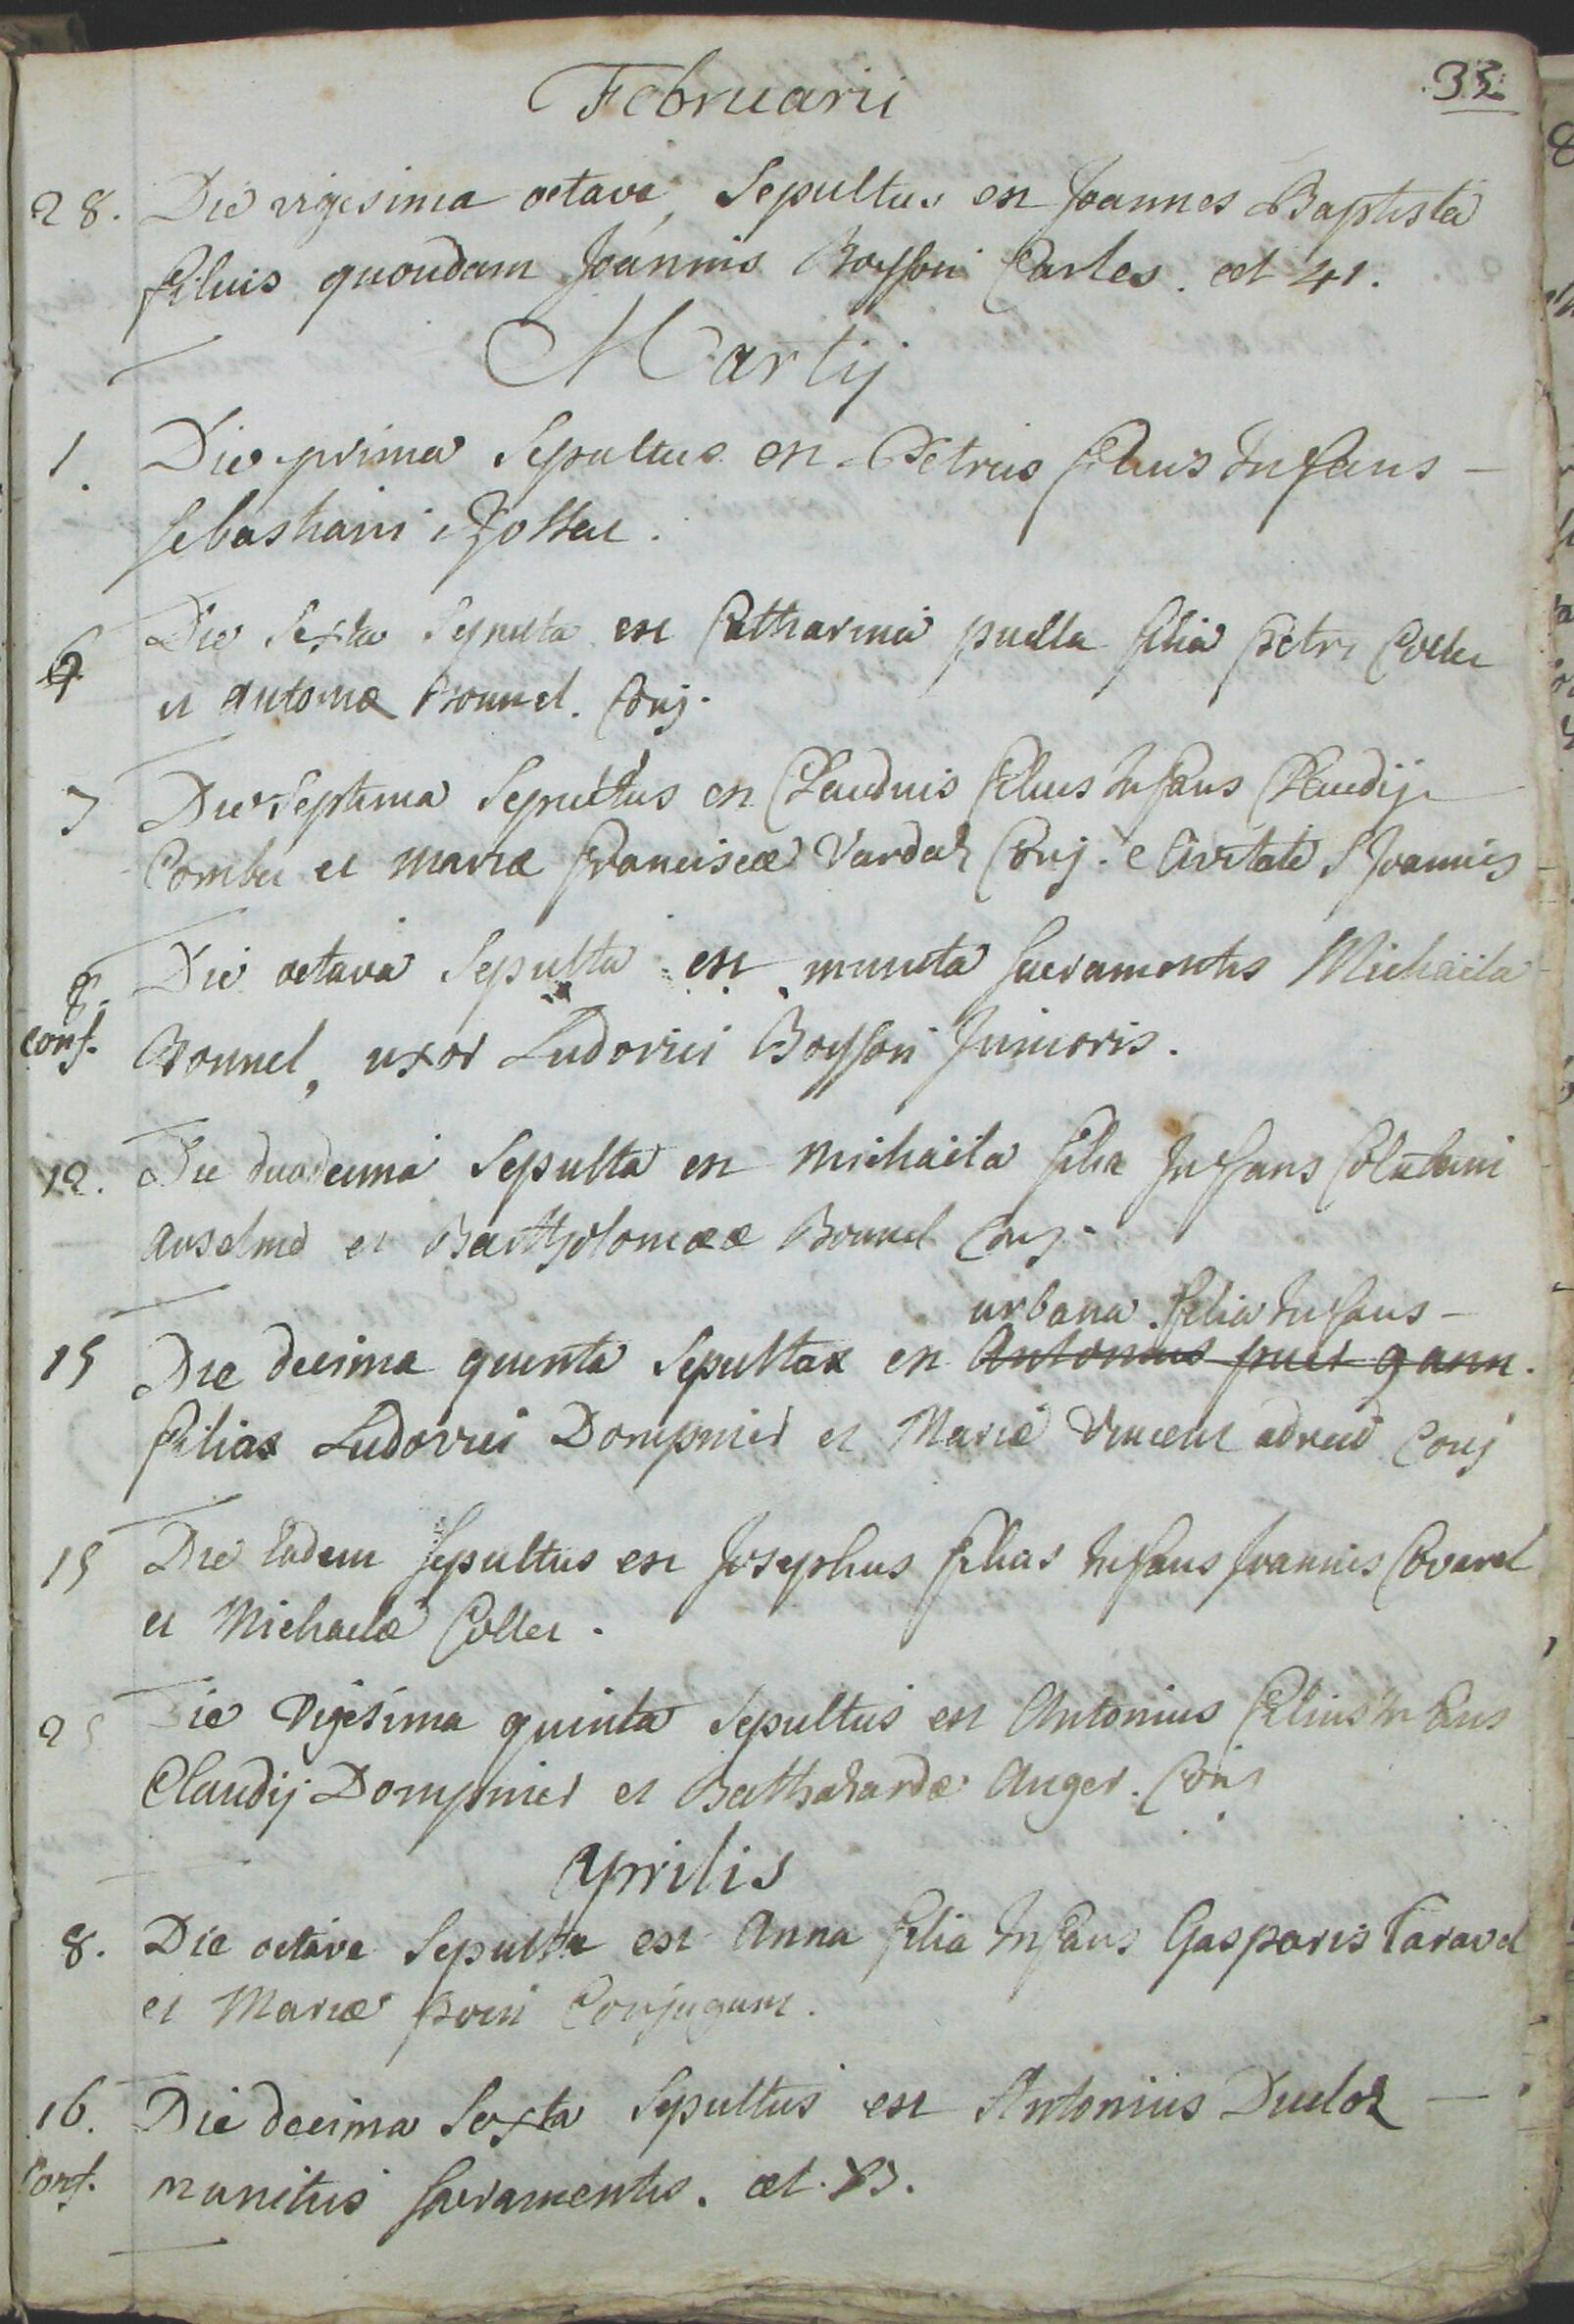 Februarii
28. Die vigesima octava, Sepultus est Joannes Baptista
filius quondam Joannis Boysson Carles. aet 41.
Martij
1. Die prima Sepultus est Petrus filius Infans —
Sebastiani
6 Die Sexta Sepulta est Catharina puella filia Petri Collet
et Antoniæ Bonnel. Conj.
7 Die Septima Sepultus est Claudius filius Infans Claudij
Combet et Mariæ Franciscæ Vardaz Conj. e Civitate S Joannis
8. Die octava Sepulta est munita Sacramentis Michaëla
conf. Bonnel, uxor Ludovici Boysson Junioris.
12. Die duodecima Sepulta est Michaëla filia Infans Colutani
Anselmo et Bartholomææ Bonnel Conj.
urbana filia Infans —
15 Die decima quinta Sepulta est Antonius puer 9 ann.
filia Ludovici Dompnier et Mariæ Vincent Conj
15 Die Eadem Sepultus est Josephus filius Infans Joannis Covarel
et Michaelæ Collet.
25 Die Vigesima quinta Sepultus est Antonius filius Infans
Claudij Dompnier et Balthazardæ Auger. Conj
Aprilis
8. Die octava Sepulta est Anna filia Infans Gasparis Taravel
et Mariæ Conjugum.
16. Die decima Sexta Sepultus est Antonius Ducloz —
conf. munitus Sacramentis. aet. 83.